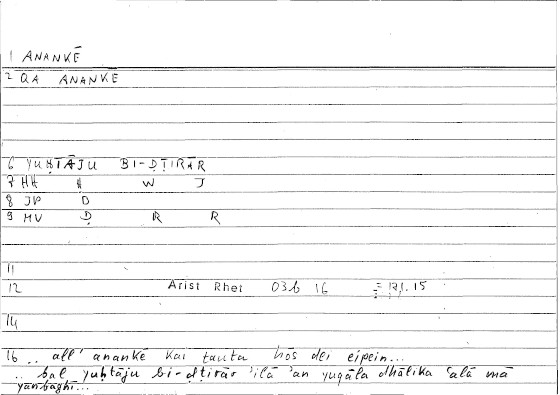 1 ANANKĒ
2 QA ANANKĒ
6 YUḤTĀJU BI-ḌṬIRĀR
7 HH Ḥ W J
8 JP D
9 MV Ḍ R R
11
12 Arist Rhet 03b 16 = 171.15
14
16 .. all' anankē kai tauta hōs dei eipein...
.. bal yuḥtāju bi-ḍṭirār 'ilā 'an yuqāla dhālika 'alā mā
yanbaghī...